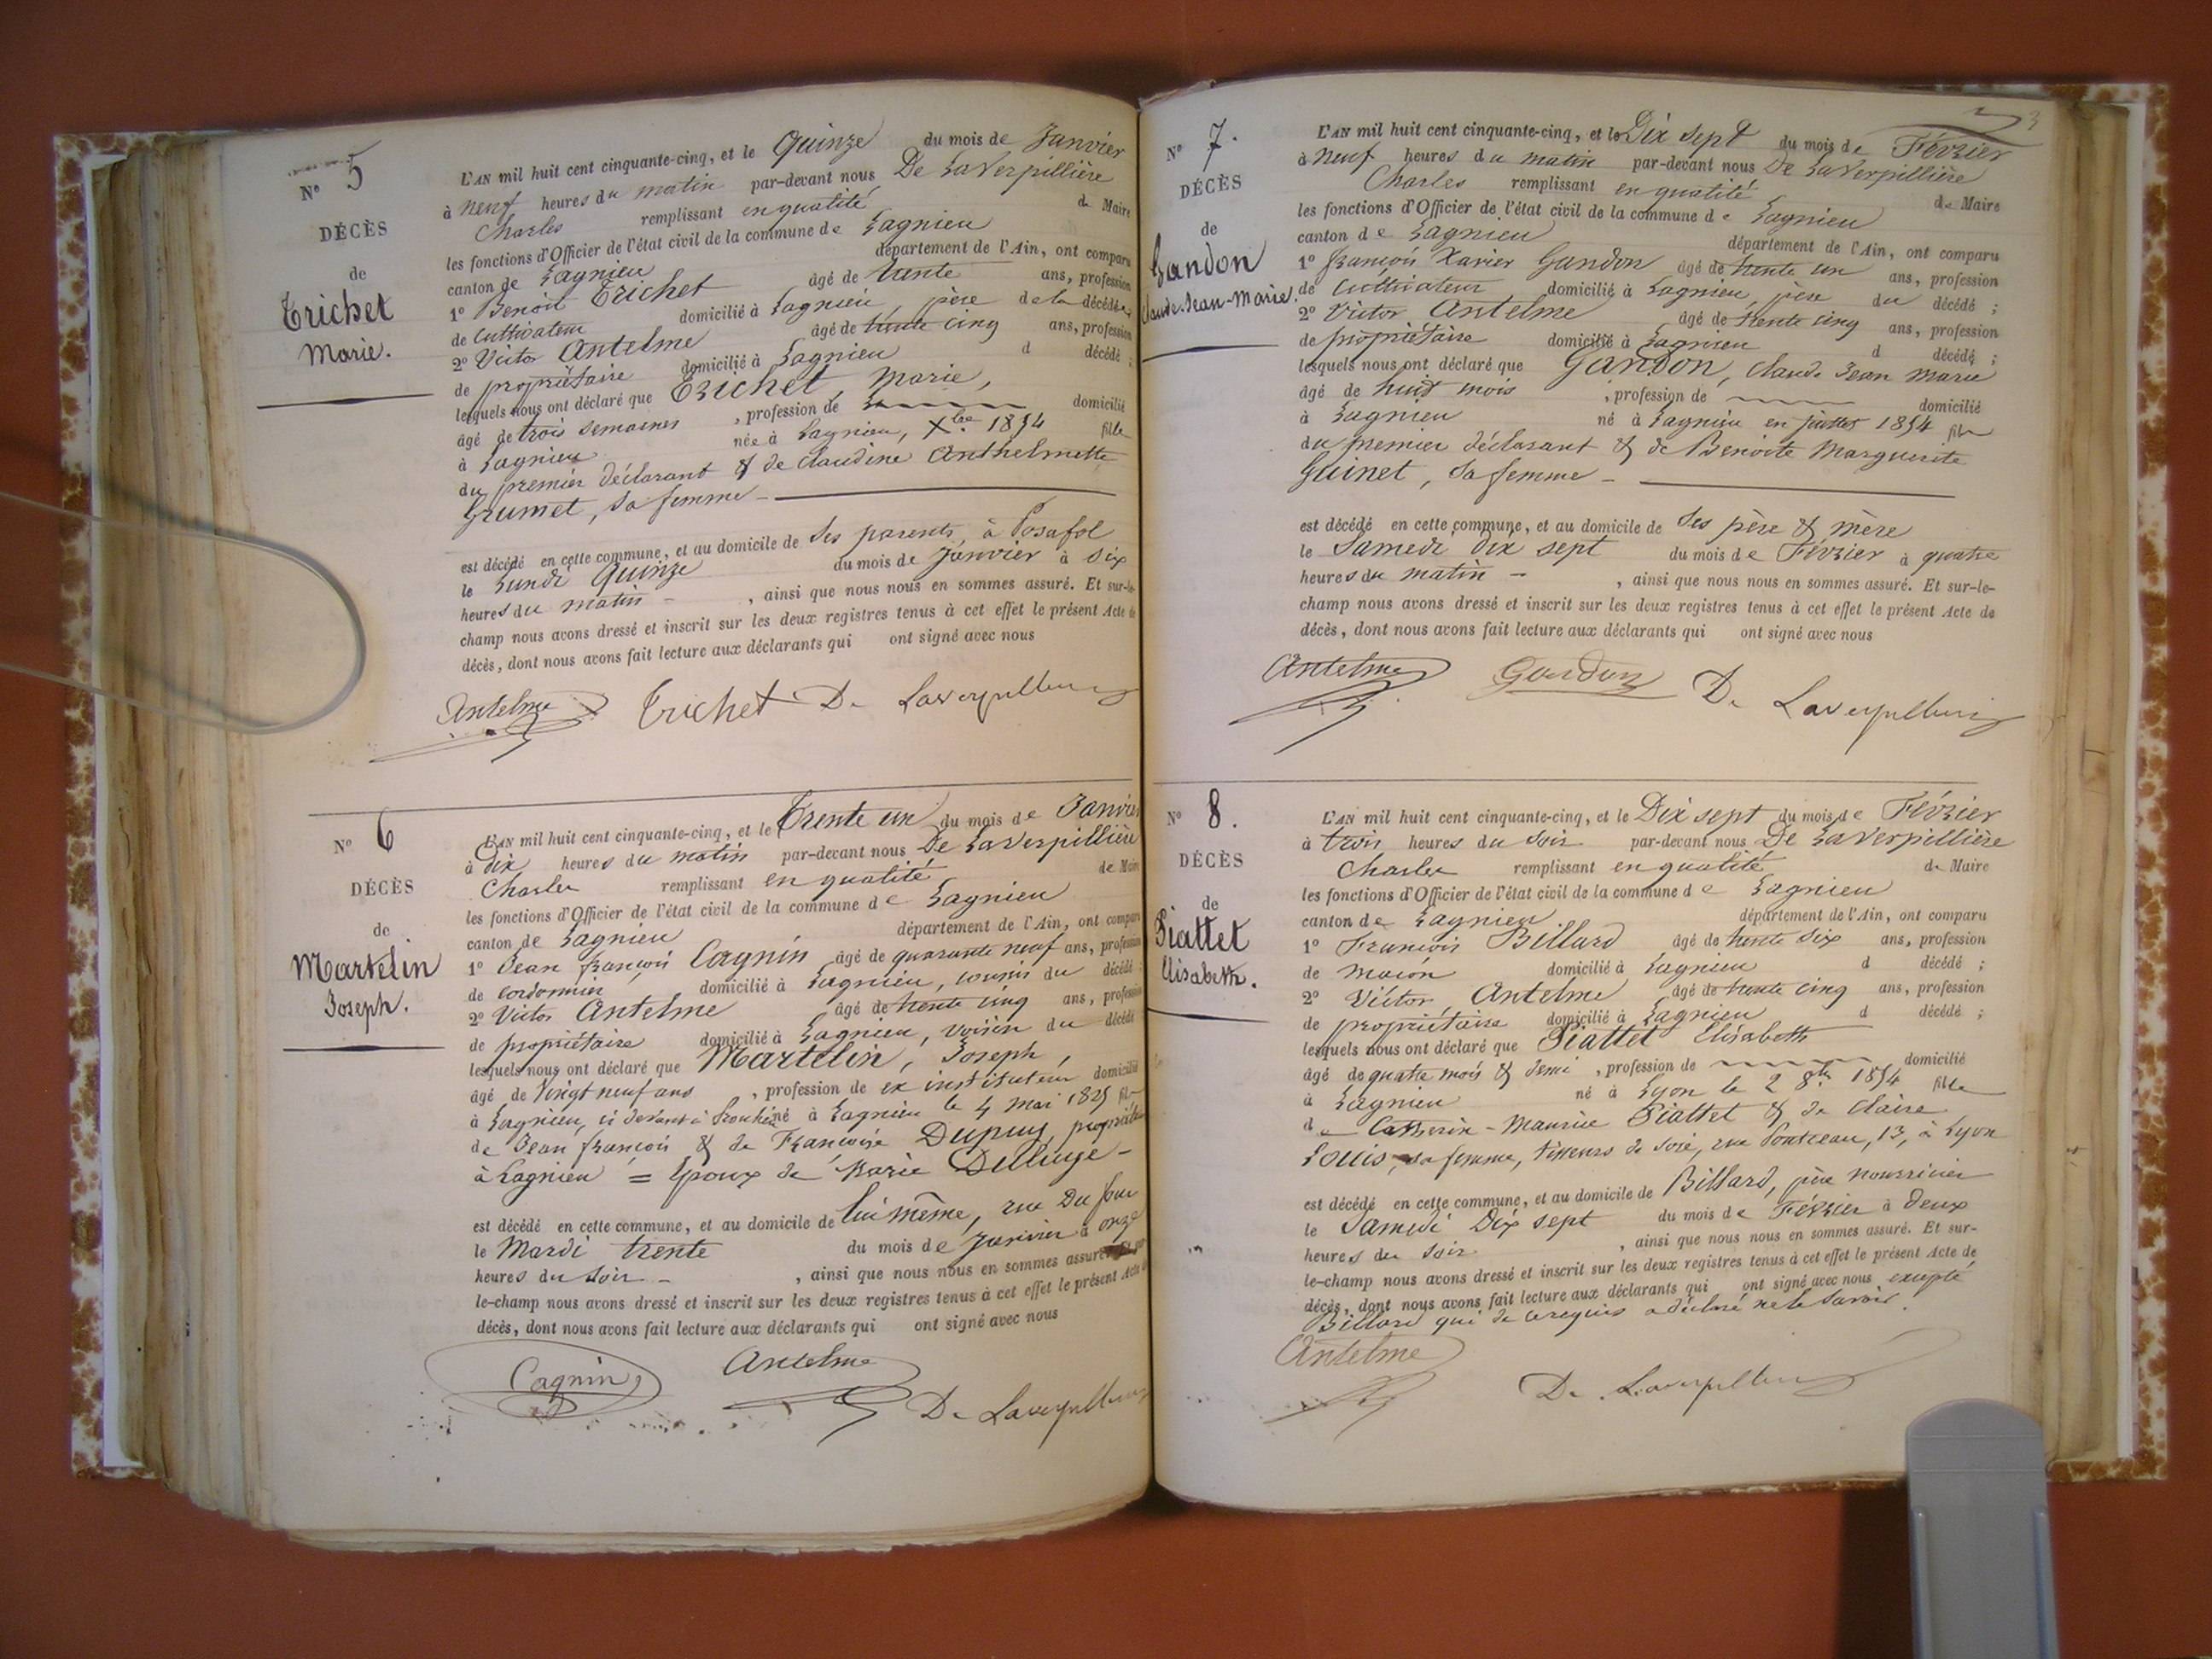 N° 5
DÉCÈS
de
Trichet
Marie.
L'AN mil huit cent cinquante-cinq, et le Quinze du mois de Janvier
à neuf heures du matin par-devant nous De LaVerpillière
Charles remplissant en qualité de Maire
les fonctions d'Officier de l'état civil de la commune de Lagnieu
canton de Lagnieu département de l'Ain, ont comparu
1° Benoit Trichet âgé de trente ans, profession
de Cultivateur domicilié à Lagnieu, père de la décédée
2° Victor Antelme âgé de trente cinq ans, profession
de propriétaire domicilié à Lagnieu d décédé ;
lesquels nous ont déclaré que Trichet, Marie,
âgé de trois semaines , profession de domicilié
à Lagnieu née à Lagnieu, Xbre 1854 fille
du premier déclarant & de Claudine Anthelmette
Grumet, sa femme -
est décédé en cette commune, et au domicile de ses parents, à Posafol
le Lundi Quinze du mois de Janvier à six
heures du matin - , ainsi que nous nous en sommes assuré. Et sur-le-
champ nous avons dressé et inscrit sur les deux registres tenus à cet effet le présent Acte de
décès, dont nous avons fait lecture aux déclarants qui ont signé avec nous
Antelme Trichet De Laverpilliere
N° 6
DÉCÈS
de
Martelin
Joseph.
L'AN mil huit cent cinquante-cinq, et le Trente un du mois de Janvier
à Dix heures du matin par-devant nous De LaVerpillière
Charles remplissant en qualité de Maire
les fonctions d'Officier de l'état civil de la commune de Lagnieu
canton de Lagnieu département de l'Ain, ont comparu
1° Jean françois Cagnin âgé de quarante neuf ans, profession
de cordonnier domicilié à Lagnieu, cousin du décédé ;
2° Victor Antelme âgé de trente cinq ans, profession
de propriétaire domicilié à Lagnieu, voisin du décédé
lesquels nous ont déclaré que Martelin, Joseph,
âgé de Vingt neuf ans , profession de ex instituteur domicilié
à Lagnieu, ci devant à né à Lagnieu le 4 Mai 1825 fils
de Jean françois & de Françoise Dupuy, propriétaires
à Lagnieu = Epoux de Marie
est décédé en cette commune, et au domicile de lui même, rue Du four
le Mardi trente du mois de Janvier à onze
heures du soir - , ainsi que nous nous en sommes assuré. Et sur-
le-champ nous avons dressé et inscrit sur les deux registres tenus à cet effet le présent Acte de
décès, dont nous avons fait lecture aux déclarants qui ont signé avec nous
Cagnin Antelme De Laverpilliere
3
N° 7.
DÉCÈS
de
Gandon
Claude-Jean-Marie.
L'AN mil huit cent cinquante-cinq, et le Dix sept du mois de Février
à neuf heures du matin par-devant nous De LaVerpillière
Charles remplissant en qualité de Maire
les fonctions d'Officier de l'état civil de la commune de Lagnieu
canton de Lagnieu département de l'Ain, ont comparu
1° françois Xavier Gandon âgé de trente un ans, profession
de Cultivateur domicilié à Lagnieu, père du décédé ;
2° Victor Antelme âgé de trente cinq ans, profession
de propriétaire domicilié à Lagnieu d décédé ;
lesquels nous ont déclaré que Gandon, Claude Jean Marie
âgé de huit mois , profession de domicilié
à Lagnieu né à Lagnieu en juillet 1854 fils
du premier déclarant & de Benoite Marguerite
Guinet, sa femme -
est décédé en cette commune, et au domicile de ses père & mère
le Samedi dix sept du mois de Février à quatre
heures du matin - , ainsi que nous nous en sommes assuré. Et sur-le-
champ nous avons dressé et inscrit sur les deux registres tenus à cet effet le présent Acte de
décès, dont nous avons fait lecture aux déclarants qui ont signé avec nous
Antelme Gandon De Laverpilliere
N° 8.
DÉCÈS
de
Piattet
Elisabeth.
L'AN mil huit cent cinquante-cinq, et le Dix sept du mois de Février
à trois heures du soir par-devant nous De LaVerpillière
Charles remplissant en qualité de Maire
les fonctions d'Officier de l'état civil de la commune de Lagnieu
canton de Lagnieu département de l'Ain, ont comparu
1° François Billard âgé de trente six ans, profession
de maçon domicilié à Lagnieu d décédé ;
2° Victor Antelme âgé de trente cinq ans, profession
de propriétaire domicilié à Lagnieu d décédé ;
lesquels nous ont déclaré que Piattet Elisabeth
âgé de quatre mois & demi , profession de domicilié
à Lagnieu né à Lyon le 2 8bre 1854 fille
de Catherin-Maurice Piattet & de Claire
Louis, sa femme, tisseurs de soie, rue Ponteau, 13, à Lyon
est décédé en cette commune, et au domicile de Billard, père nourricier
le Samedi Dix sept du mois de Février à deux
heures du soir , ainsi que nous nous en sommes assuré. Et sur-
le-champ nous avons dressé et inscrit sur les deux registres tenus à cet effet le présent Acte de
décès, dont nous avons fait lecture aux déclarants qui ont signé avec nous excepté
Billard qui de ce requis a déclaré ne le savoir.
Antelme De Laverpilliere